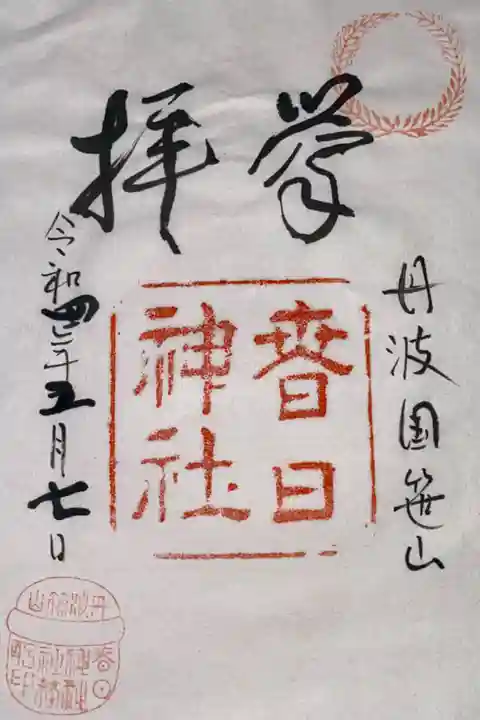 奉拝
丹波国笹山
春日
神社
令和四年五月七日